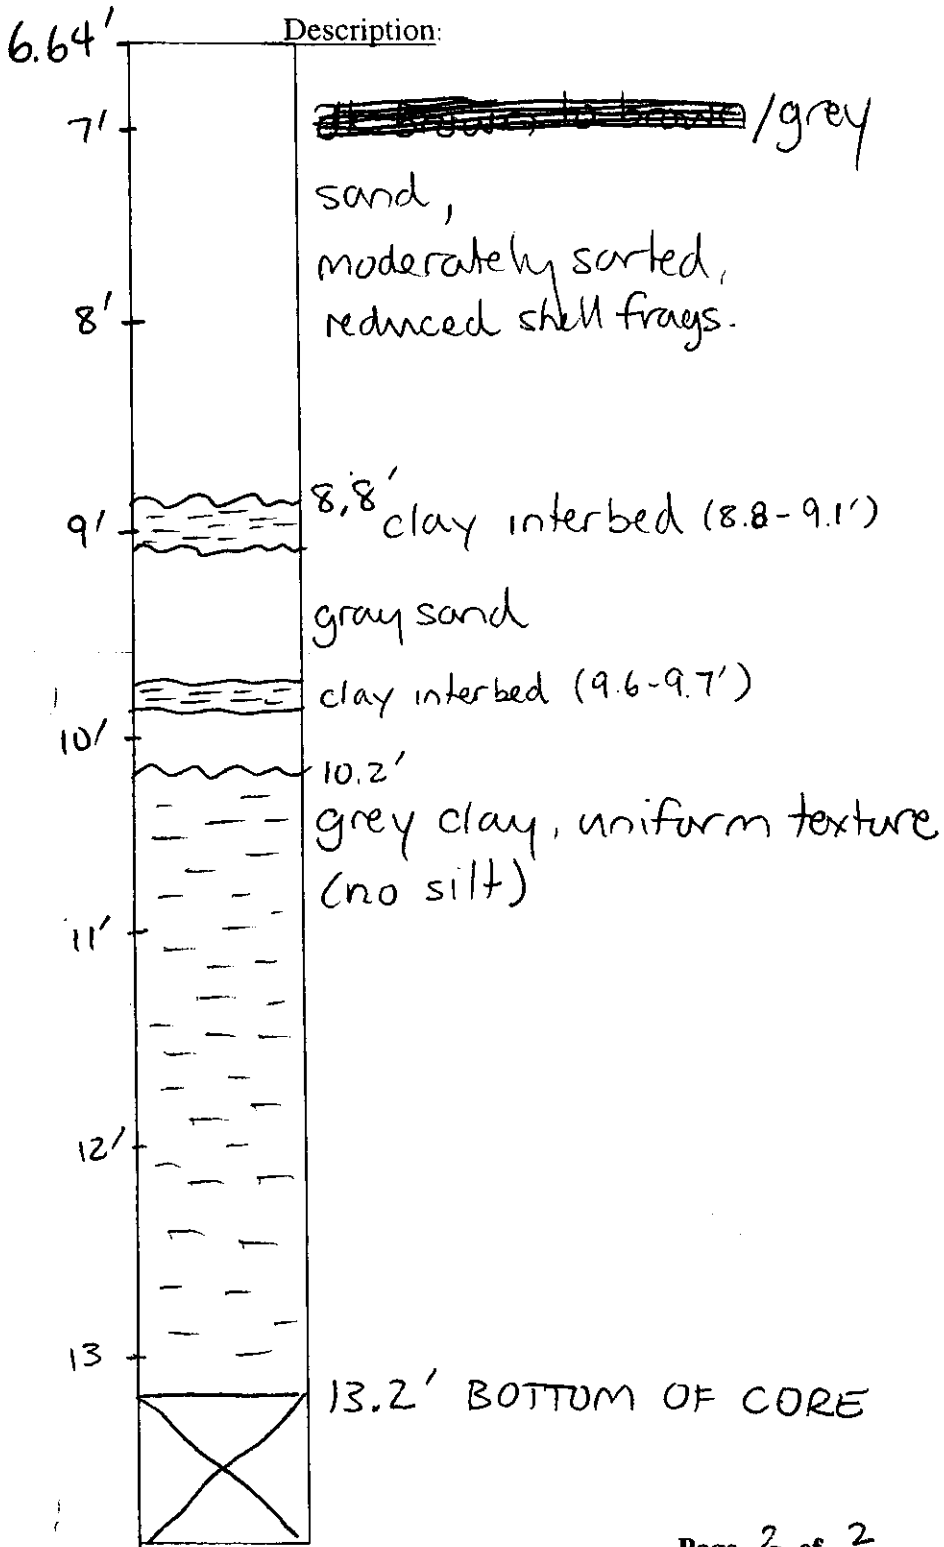 6.64'
Description:
7'
/grey
sand,
moderately sorted,
8'
reduced shell frags.
8.8'
9'
clay interbed (8.8-9.1')
gray sand
clay interbed (9.6-9.7')
10'
10.2'
grey clay, uniform texture
(no silt)
11'
12'
13
13.2' BOTTOM OF CORE
Page 2 of 2